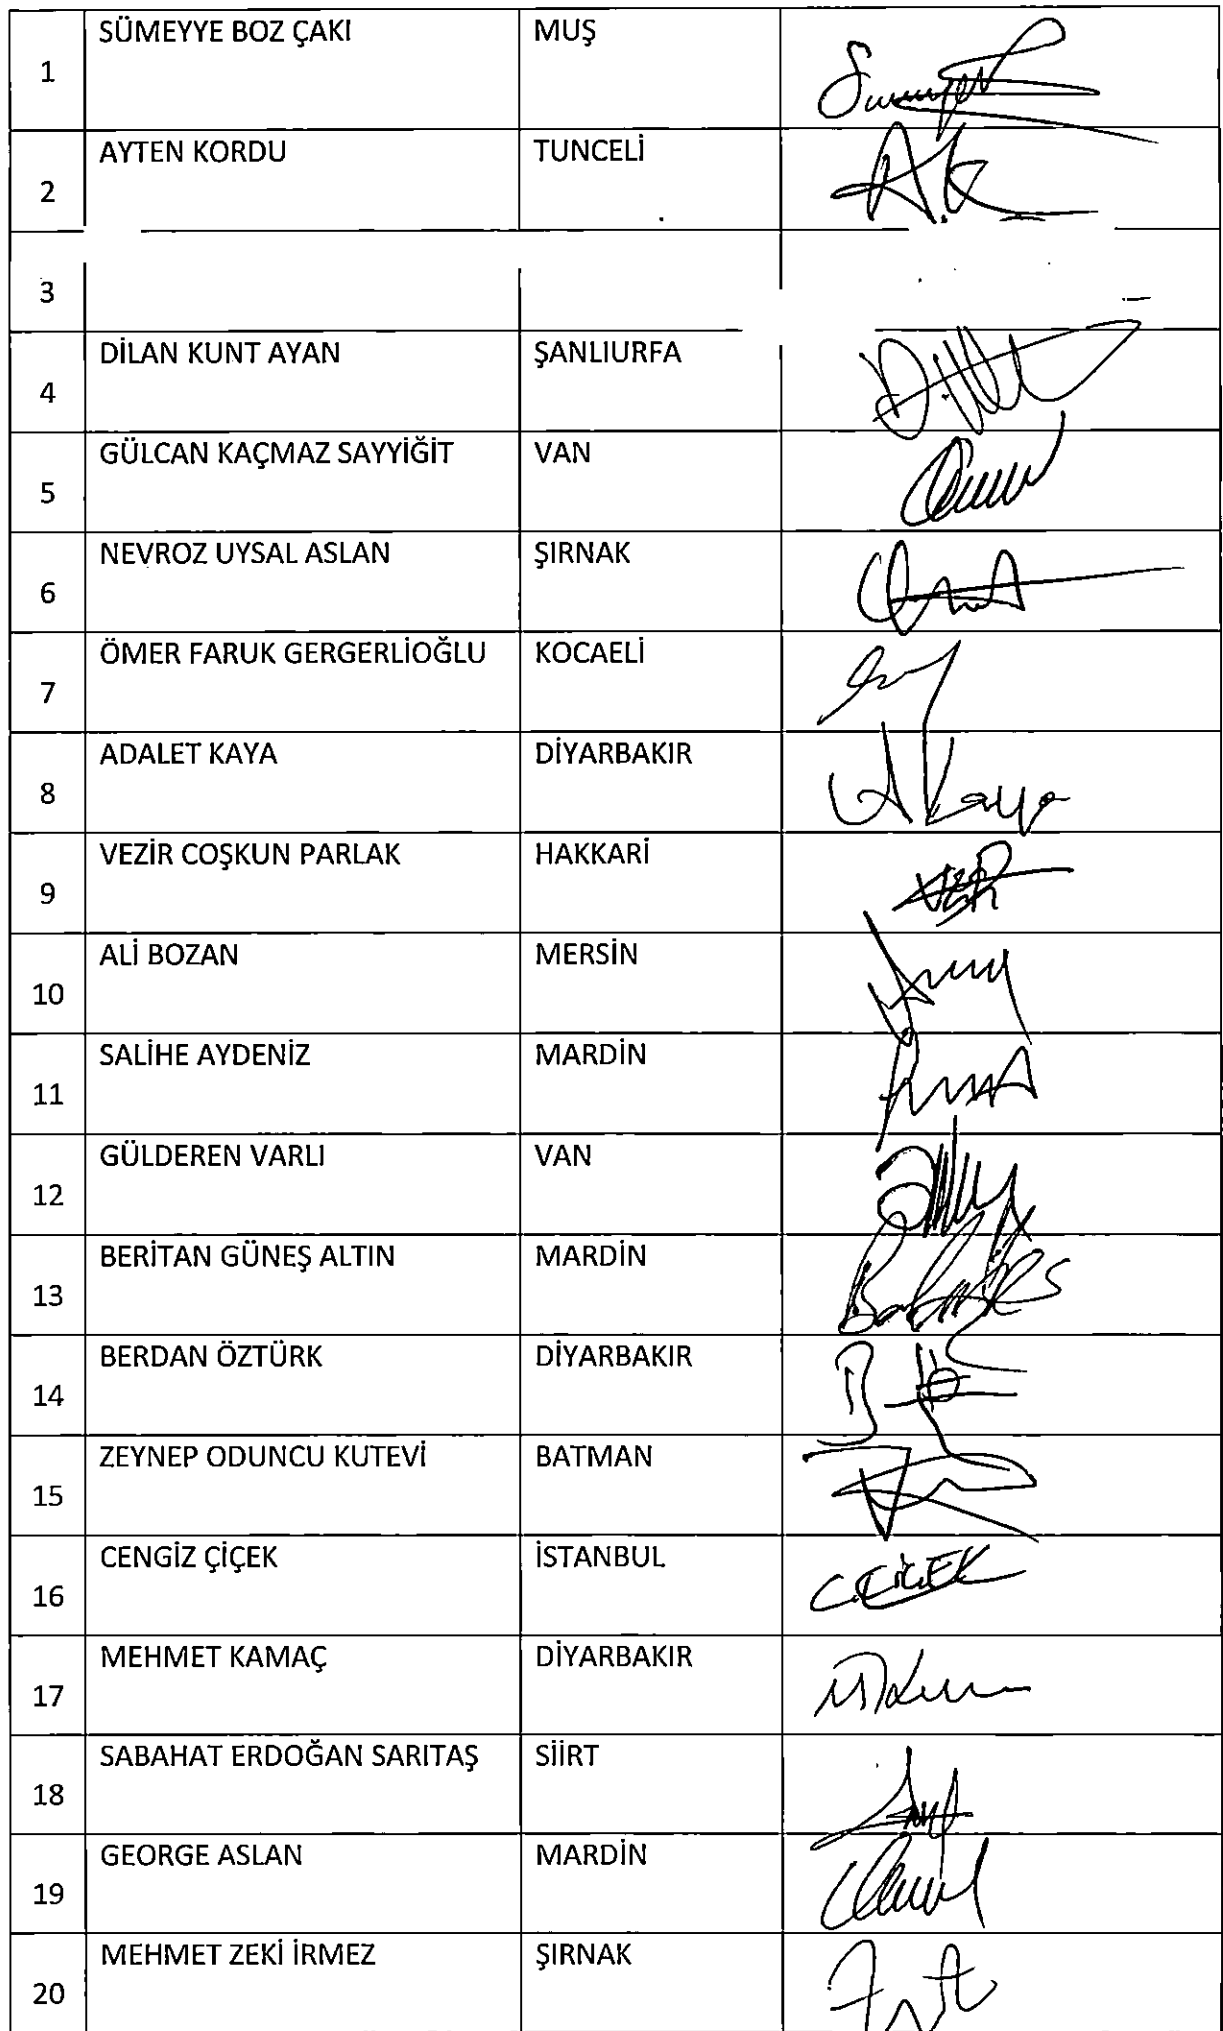 1 SÜMEYYE BOZ ÇAKI MUŞ
2 AYTEN KORDU TUNCELİ A.K
3
4 DİLAN KUNT AYAN ŞANLIURFA
5 GÜLCAN KAÇMAZ SAYYİĞİT VAN
6 NEVROZ UYSAL ASLAN ŞIRNAK
7 ÖMER FARUK GERGERLİOĞLU KOCAELİ
8 ADALET KAYA DİYARBAKIR A Kaya
9 VEZİR COŞKUN PARLAK HAKKARİ
10 ALİ BOZAN MERSİN
11 SALİHE AYDENİZ MARDİN
12 GÜLDEREN VARLI VAN
13 BERİTAN GÜNEŞ ALTIN MARDİN
14 BERDAN ÖZTÜRK DİYARBAKIR
15 ZEYNEP ODUNCU KUTEVİ BATMAN
16 CENGİZ ÇİÇEK İSTANBUL C.ÇİÇEK
17 MEHMET KAMAÇ DİYARBAKIR
18 SABAHAT ERDOĞAN SARITAŞ SİİRT
19 GEORGE ASLAN MARDİN
20 MEHMET ZEKİ İRMEZ ŞIRNAK